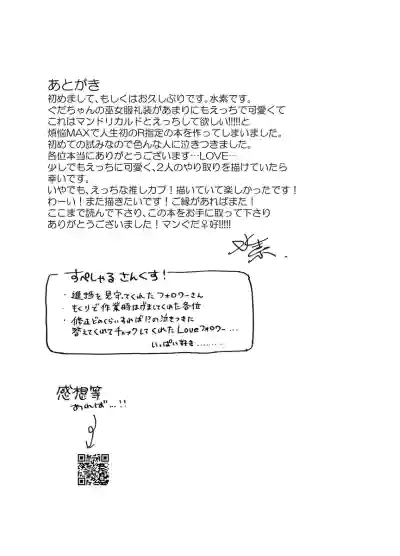 あとがき
初めまして、もしくはお久しぶりです。水素です。
ぐだちゃんの巫女服礼装があまりにもえっちで可愛くて
これはマンドリカルドとえっちして欲しい!!!!!と
煩悩MAXで人生初のR指定の本を作ってしまいました。
初めての試みなので色んな人に泣きつきました。
各位本当にありがとうございます…LOVE…
少しでもえっちに可愛く、2人のやり取りを描けていたら
幸いです。
いやでも、えっちな推しカプ！描いていて楽しかったです！
わーい！また描きたいです！ご縁があればまた！
ここまで読んで下さり、この本をお手に取って下さり
ありがとうございました！マンぐだ♀好!!!!!
水素.
すぺしゃるさんくす!
・進捗を見守ってくれたフォロワーさん
・もくりで作業時はげましてくれた各位
・修正どのくらいすれば!?の泣きつきに
答えてくれてチェックしてくれたLoveフォロワー…
いっぱい好き………
感想等
あれば…!!